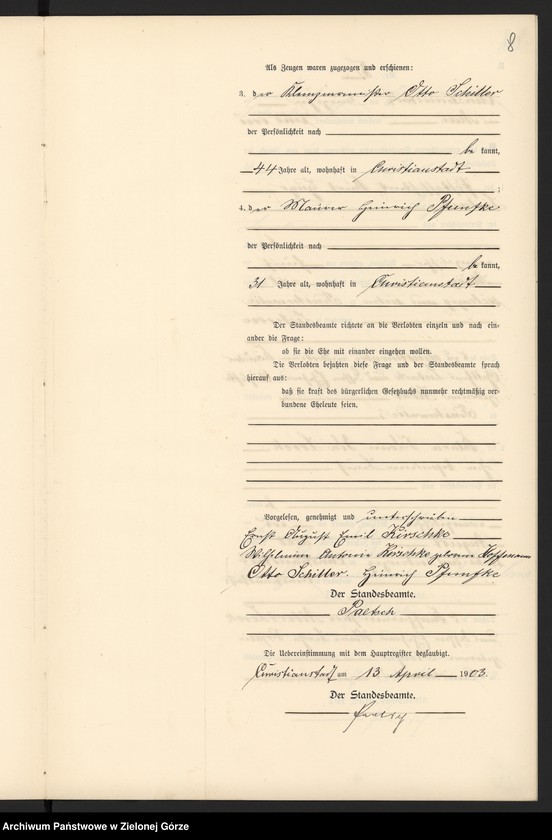 8
Als Zeugen waren zugezogen und erschienen:
3. der Klempnermeister Otto Schiller
der Persönlichkeit nach
be kannt,
44 Jahre alt, wohnhaft in Christianstadt
;
4. der Maurer Heinrich
der Persönlichkeit nach
be kannt,
31 Jahre alt, wohnhaft in Christianstadt
Der Standesbeamte richtete an die Verlobten einzeln und nach ein-
ander die Frage:
ob sie die Ehe mit einander eingehen wollen.
Die Verlobten bejahten diese Frage und der Standesbeamte sprach
hierauf aus:
daß sie kraft des bürgerlichen Gesetzbuchs nunmehr rechtmäßig ver-
bundene Eheleute seien.
Vorgelesen, genehmigt und unterschrieben
Ernst August Emil Kirschke
Wilhelmine Antonie Kirschke geborene Hoffmann
Otto Schiller. Heinrich
Der Standesbeamte.
Paetsch
Die Uebereinstimmung mit dem Hauptregister beglaubigt.
Christianstadt am 13 April 1903.
Der Standesbeamte.
Archiwum Państwowe w Zielonej Górze